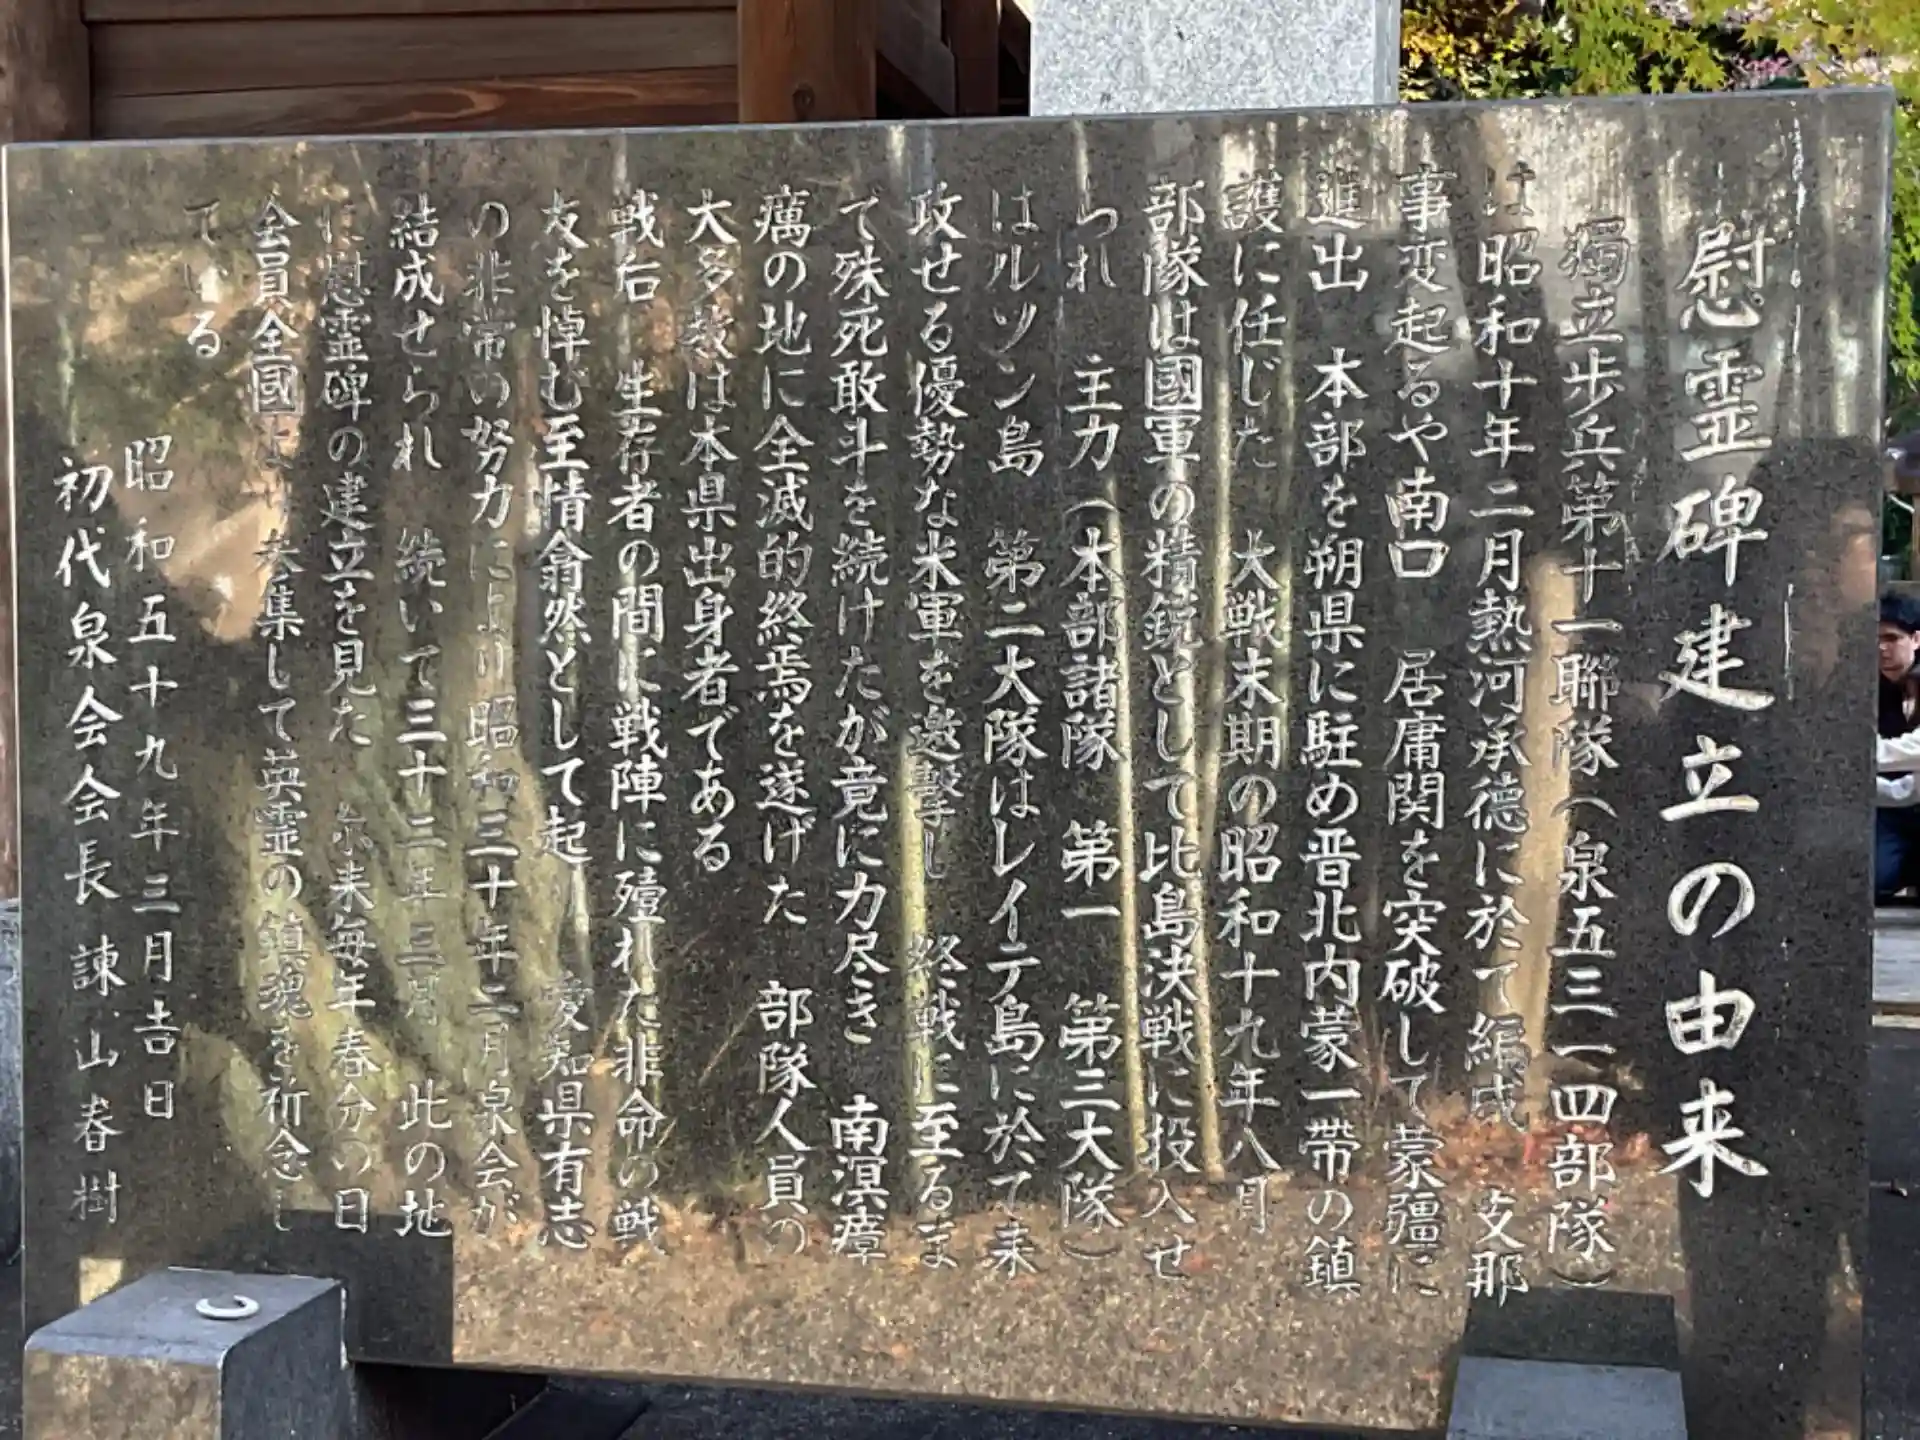 慰霊碑建立の由来
獨立歩兵第十一聯隊（泉五三一四部隊）
は昭和十年二月熱河承德に於て編成　支那
事変起るや南口　居庸関を突破して蒙疆に
進出　本部を朔県に駐め晋北内蒙一帯の鎮
護に任じた　大戦末期の昭和十九年八月
部隊は國軍の精鋭として比島決戦に投入せ
られ　主力（本部諸隊　第一　第三大隊）
はルソン島　第二大隊はレイテ島に於て来
攻せる優勢な米軍を邀撃し　終戦に至るま
で殊死敢斗を続けたが竟に力尽き　南溟瘴
癘の地に全滅的終焉を遂げた　部隊人員の
大多数は本県出身者である
戦后　生存者の間に戦陣に殪れた非命の戦
友を悼む至情翕然として起り　愛知県有志
の非常の努力により昭和三十年二月泉会が
結成せられ　続いて三十三年三月　此の地
に慰霊碑の建立を見た　尓来毎年春分の日
全員全國より参集して英霊の鎮魂を祈念し
ている
昭和五十九年三月吉日
初代泉会会長　諌山春樹